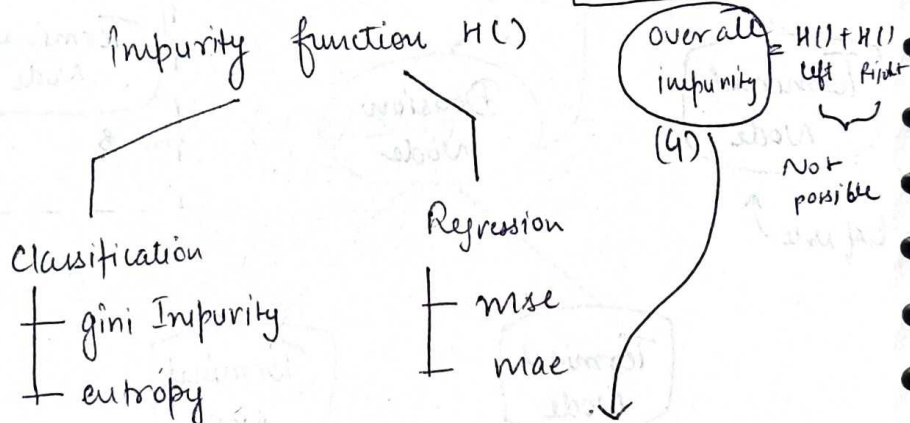 Impurity function H()
Overall impurity = H() + H()
left Right
(G)
Not possible
Classification
gini Impurity
entropy
Regression
mse
mae